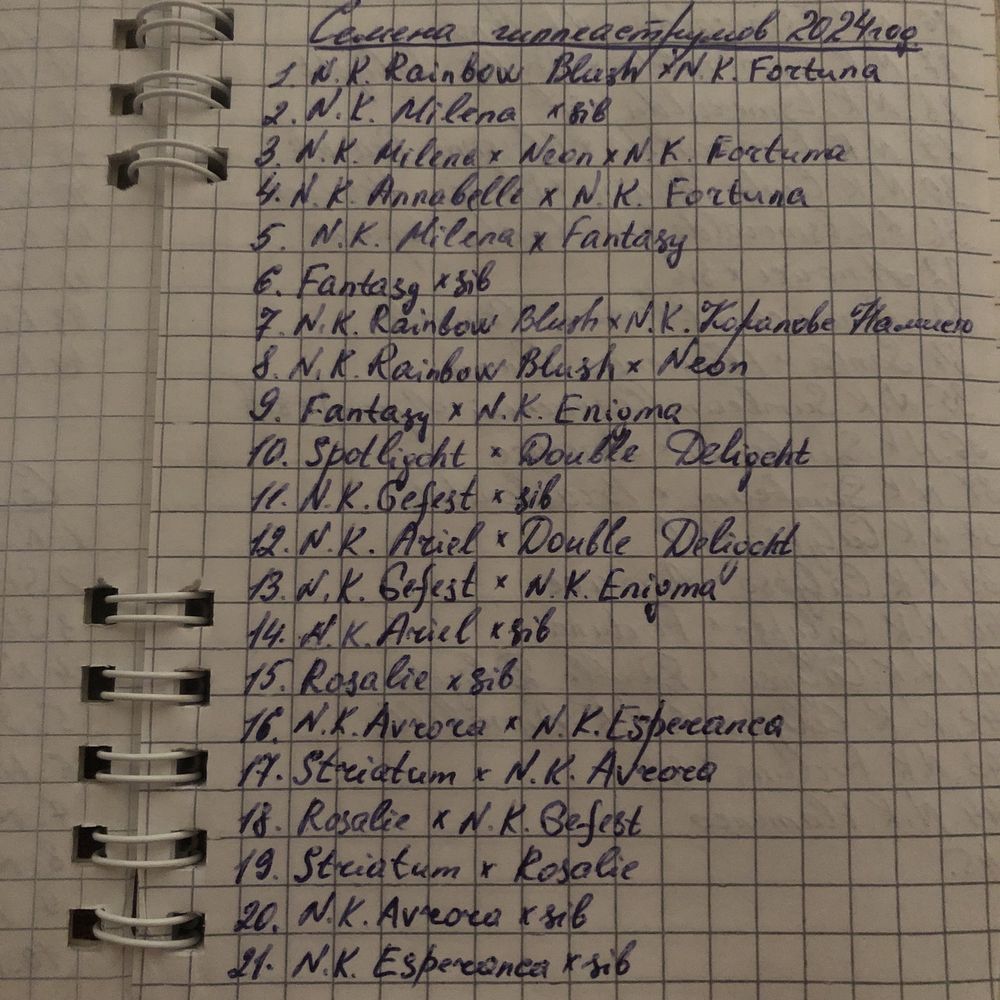 Семена гиппеаструмов 2024 год
1. N.K. Rainbow Blush x N.K. Fortuna
2. N.K. Milena x sib
3. N.K. Milena x Neon x N.K. Fortuna
4. N.K. Annabelle x N.K. Fortuna
5. N.K. Milena x Fantasy
6. Fantasy x sib
7. N.K. Rainbow Blush x N.K. Коралове Намисто
8. N.K. Rainbow Blush x Neon
9. Fantasy x N.K. Enigma
10. Spotligcht x Double Deligcht
11. N.K. Gefest x sib
12. N.K. Ariel x Double Deligcht
13. N.K. Gefest x N.K. Enigma
14. N.K. Ariel x sib
15. Rosalie x sib
16. N.K. Avrora x N.K. Esperanca
17. Striatum x N.K. Avrora
18. Rosalie x N.K. Gefest
19. Striatum x Rosalie
20. N.K. Avrora x sib
21. N.K. Esperanca x sib